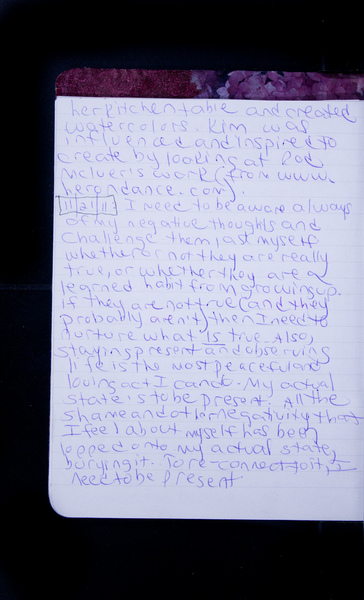 her kitchen table and created
watercolors. Kim was
influenced and inspired to
create by looking at Rod
McIver's work (from www.
herondance.com).
11 21 11 I need to be aware always
of my negative thoughts and
challenge them, ask myself
whether or not they are really
true, or whether they are a
learned habit from growing up.
If they are not true (and they
probably aren't) then I need to
nurture what is true. Also,
staying present and observing
life is the most peaceful and
loving act I can do. My actual
state is to be present. All the
shame and other negativity that
I feel about myself has been
lopped onto my actual state,
burying it. To re-connect to it, I
need to be present